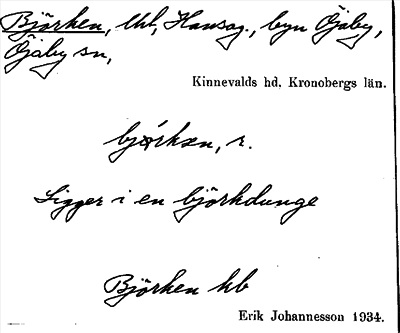 Björken, lhl, Hansag., byn Öjaby,
Öjaby sn,
Kinnevalds hd, Kronobergs län.
bjǿrkæn, r.
Ligger i en björkdunge
Björken hb
Erik Johannesson 1934.